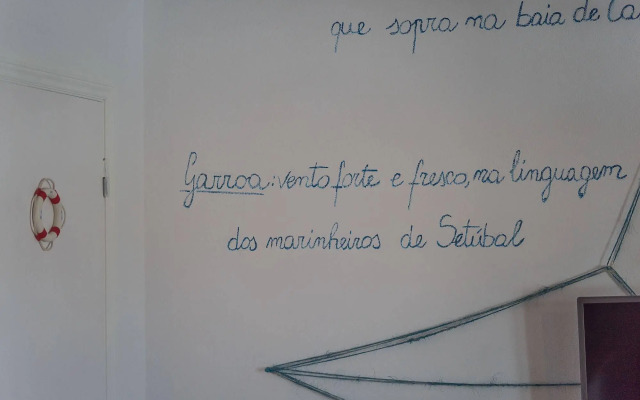 que sopra na baia de
Garroa: vento forte e fresco, na linguagem
dos marinheiros de Setúbal